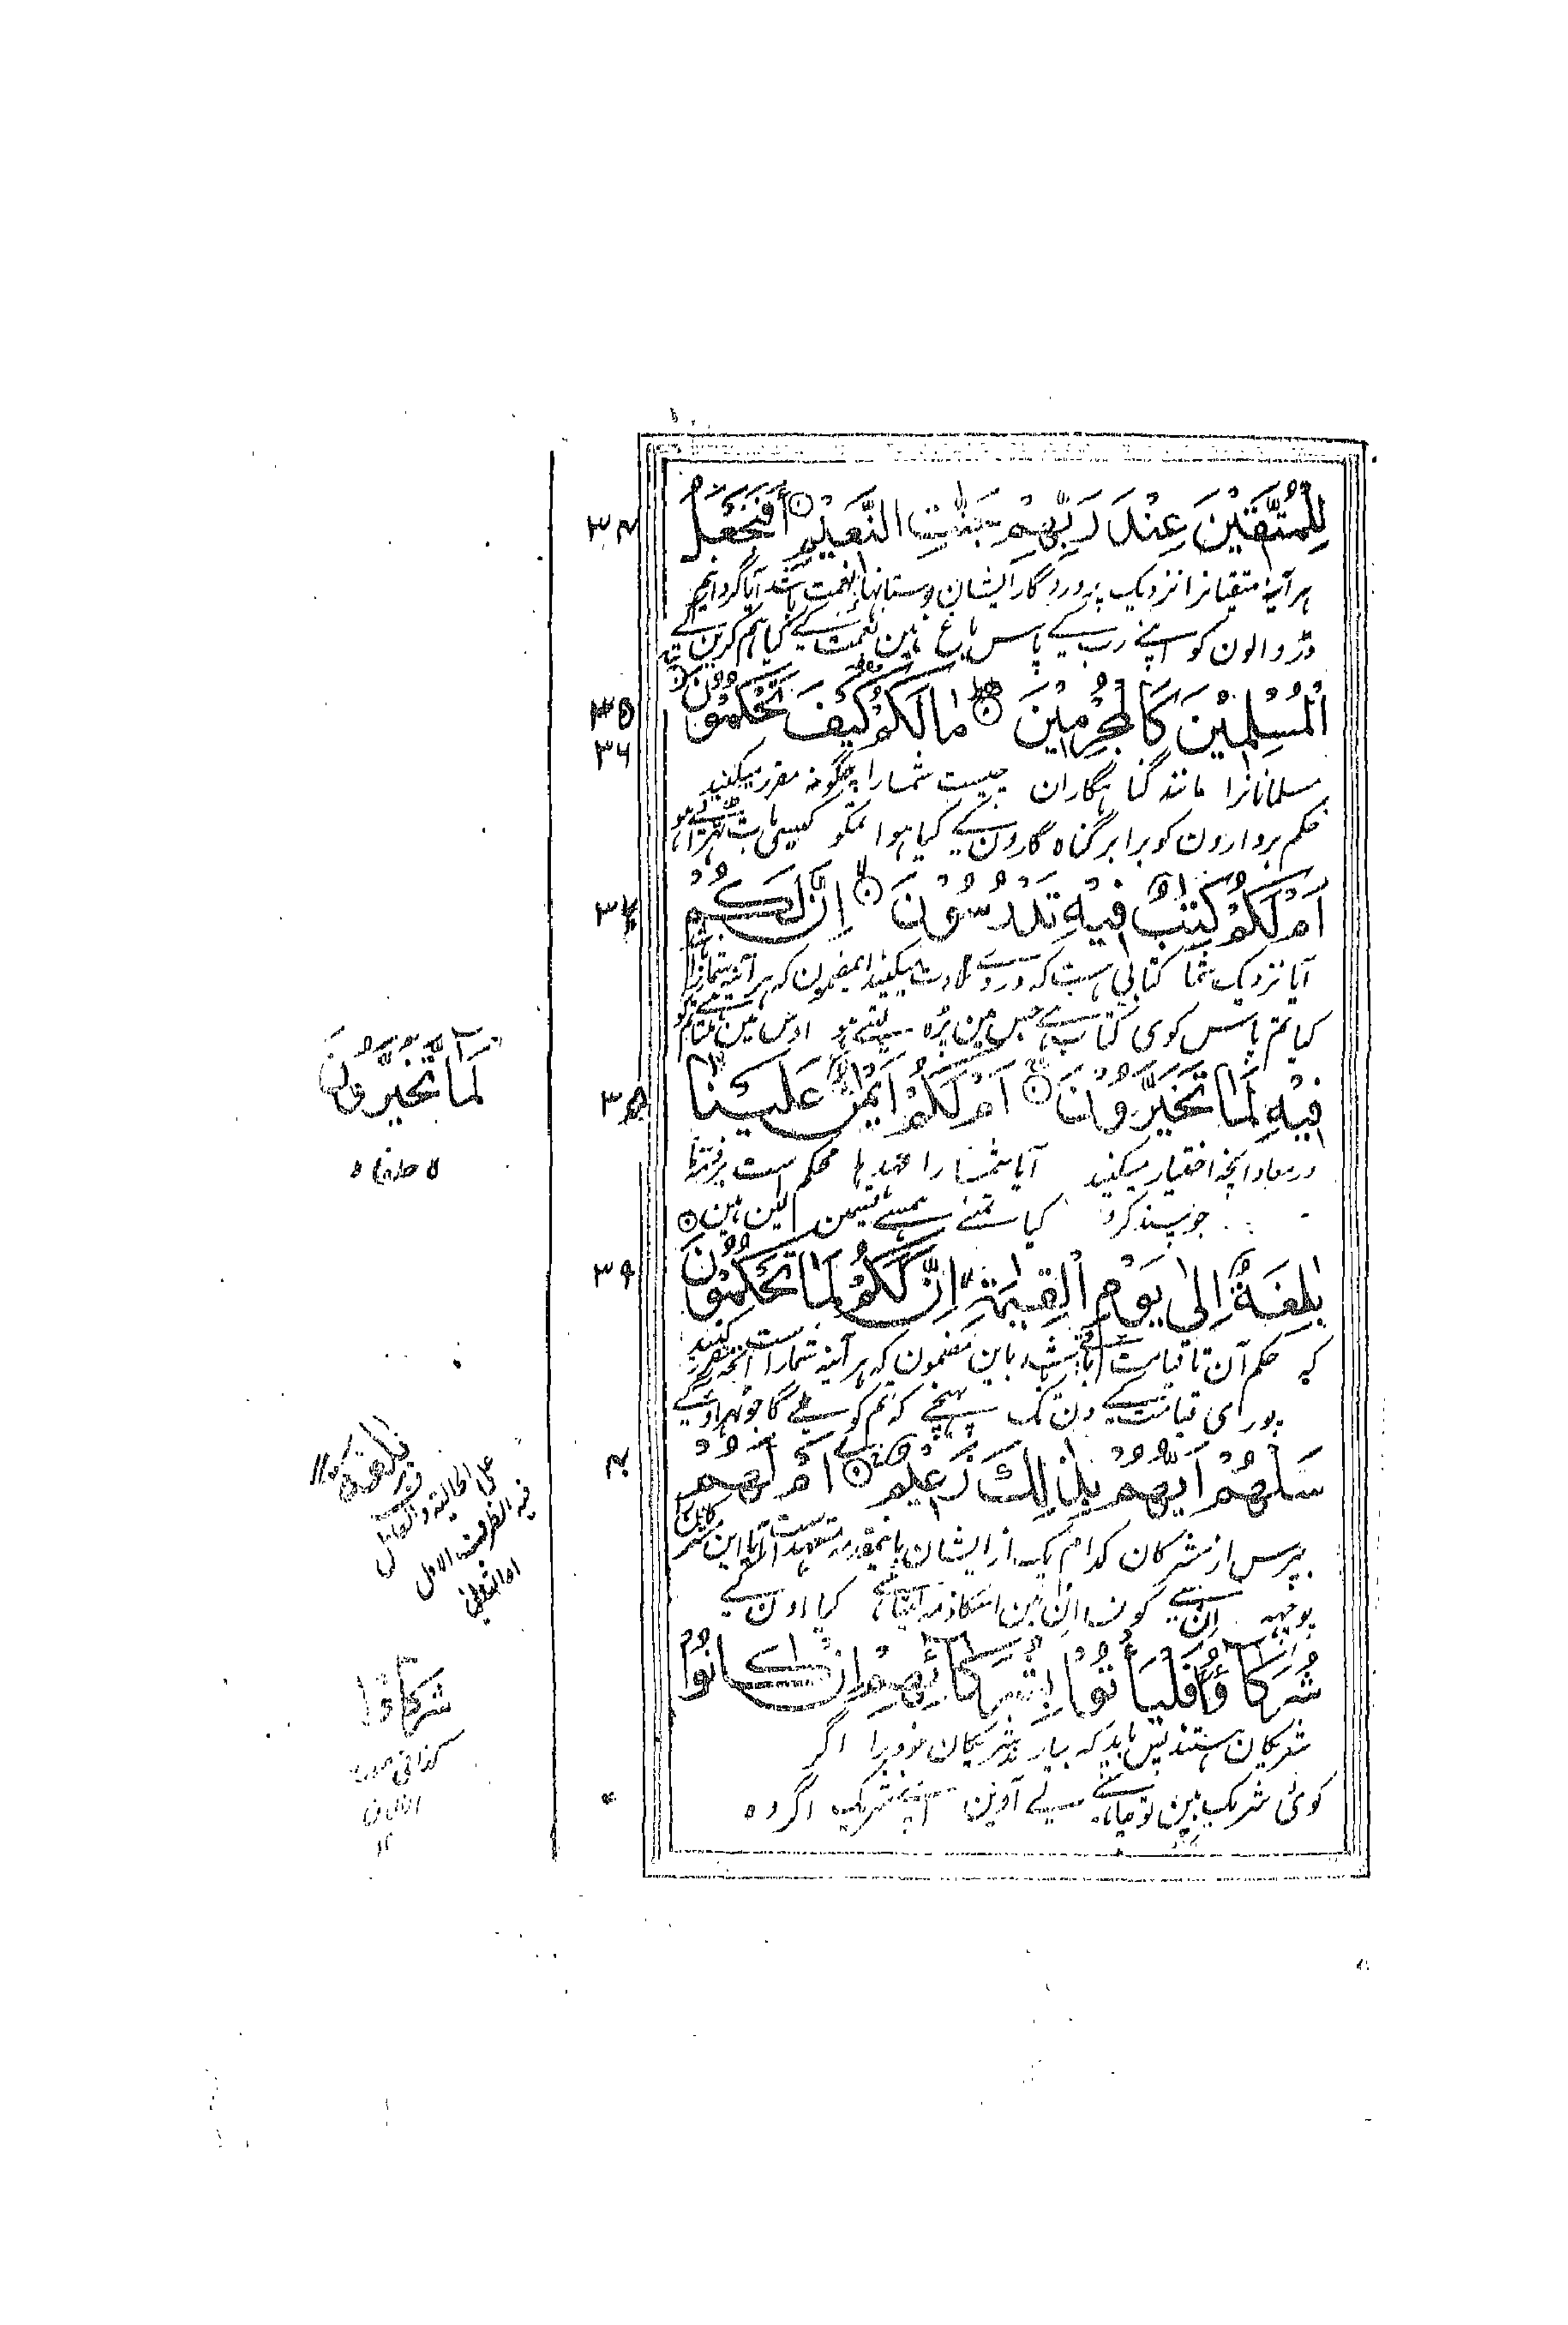 لِلْمُتَّقِيْنَ عِنْدَ رَبِّهِمْ جَنّٰتِ النَّعِيْمِ ۝ أَفَنَجْعَلُ
۳۴
ہر آئینہ متقیانرا نزدیک پروردگار ایشان بوستانہای نعمت باشد آیا گردانیم
ڈر والون کو اپنے رب کے پاس باغ ہین نعمت کے کیا ہم کرین گے
الْمُسْلِمِيْنَ كَالْمُجْرِمِيْنَ ۝ مَا لَكُمْ كَيْفَ تَحْكُمُوْنَ ۝
۳۵
۳۶
مسلمانانرا مانند گناہگاران چیست شمارا چگونہ مقرر میکنید
حکم بردارون کو برابر گناہ گارون کے کیا ہوا تمکو کیسی بات
اَمْ لَكُمْ كِتٰبٌ فِيْهِ تَدْرُسُوْنَ ۝ اِنَّ لَكُمْ
۳۷
آیا نزدیک شما کتابی ہست کہ دروے تلاوت میکنید اینمضمون کہ ہر آئینہ شمارا
کیا تم پاس کوی کتاب ہے جس مین پڑہ لیتے ہو اوس مین ملتا ہے تمکو
فِيْهِ لَمَا تَخَيَّرُوْنَ ۝ اَمْ لَكُمْ اَيْمٰنٌ عَلَيْنَا
۳۸
در معاد آنچہ اختیار میکنید آیا شمارا عہدہا محکم است بر ذمہ ما
جو پسند کرو کیا تمنے ہمسے قسمین لین ہین
بٰلِغَةٌ اِلٰى يَوْمِ الْقِيٰمَةِ اِنَّ لَكُمْ لَمَا تَحْكُمُوْنَ ۝
۳۹
کہ حکم آن تا قیامت باشد باین مضمون کہ ہر آئینہ شمارا است آنچہ مقرر کنید
پوری قیامت کے دن تک پہنچے کہ تم کو ملے گا جو ٹہراوگے
سَلْهُمْ اَيُّهُمْ بِذٰلِكَ زَعِيْمٌ ۝ اَمْ لَهُمْ
۴۰
بپرس از مشرکان کدام یک از ایشان باینمقدمہ متعہد است آیا این
پوچہہ ان سے کون ان مین اسکا ذمہ لیتا ہے کیا اون کے
شُرَكَآؤُا فَلْيَأْتُوْا بِشُرَكَآئِهِمْ اِنْ كَانُوْا
شریکان ہستند پس باید کہ بیارند شریکان خود را اگر
کوئی شریک ہین تو چاہیے لے آوین اپنے شریک اگر وہ
لَمَا تَخَيَّرُوْنَ
بٰلِغَةٌ
علی الحالیة والعامل
فیہ الظرف الاول
شركاؤا